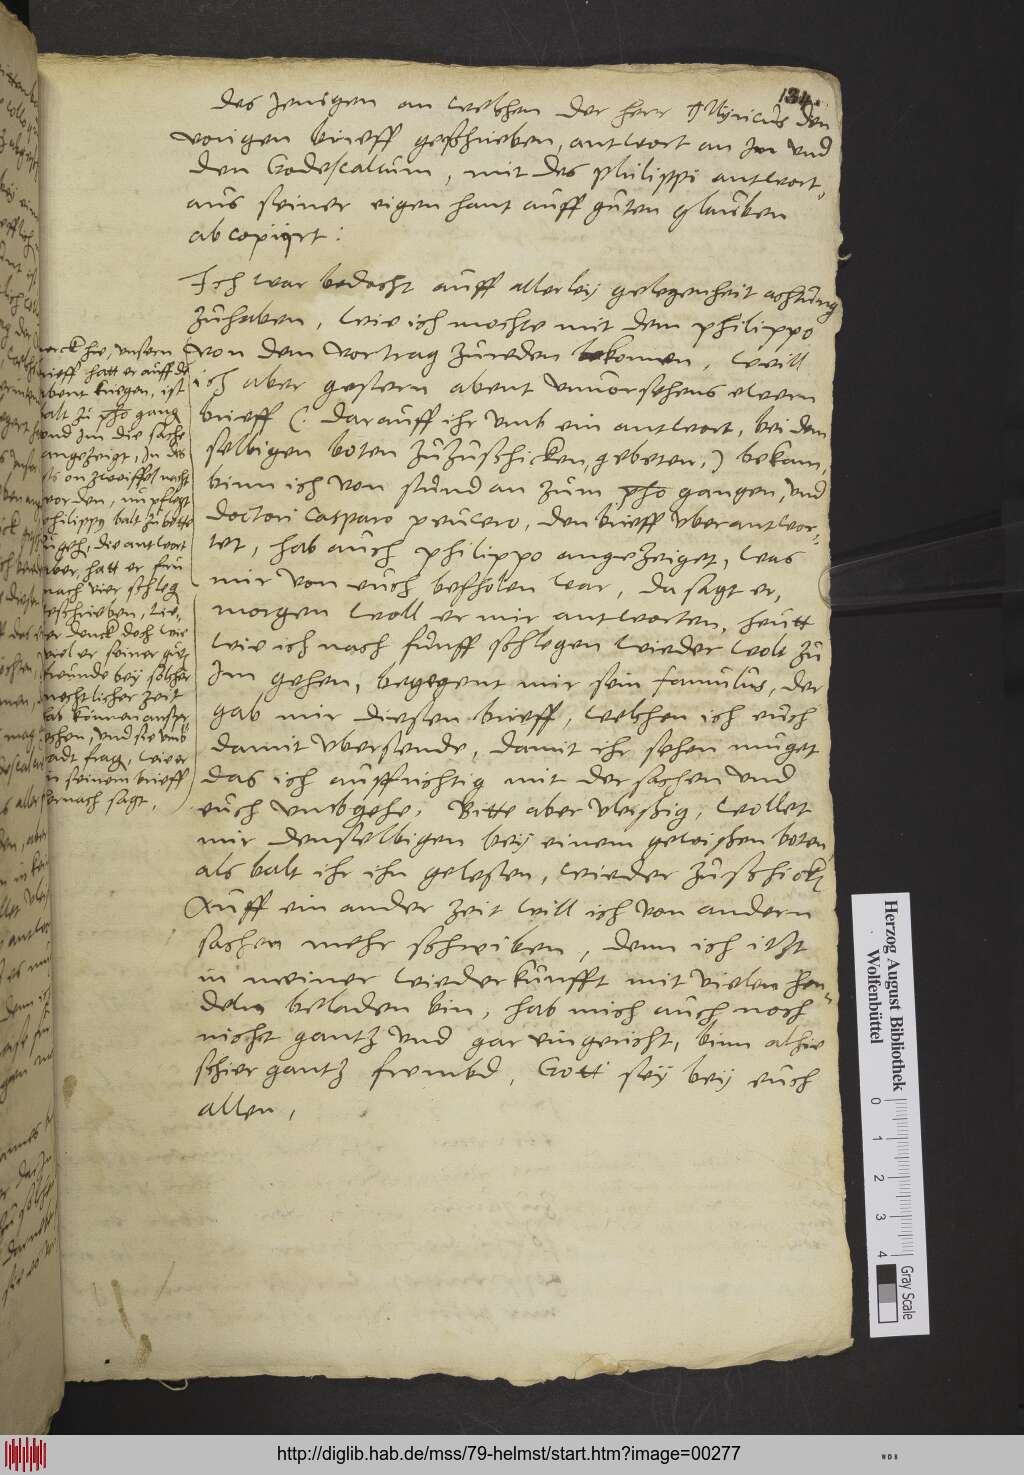 134.
des Jenigen an welchen der herr Illyricus den
vorigen brieff geschrieben, antwort an Jm und
den Godescalcum, mit des philippi antwort,
aus seiner eigen hant auff guten glauben
abcopiyrt:
Ich war bedacht auff allerleij gelegenheit achtung
zuhaben, wie ich mochte mit dem philippo
von dem vortrag zureden bekomen, weill
ich aber gestern abent unvorsehens ewern
brieff (: darauff ihr umb ein antwort, bei dem
selbigen boten zuzuschicken, gebeten,) bekam,
binn ich von stund an zum pho gangen, und
doctori Casparo peucero, den brieff uberantwor-
tet, hab auch philippo angezeiget, was
mir von euch befholen war, da sagt er,
morgen woll er mir antworten, heutt
wie ich nach funff schlegen wieder wolt zu
Jm gehen, begegent mir sein famulus, der
gab mir diesen brieff, welchen ich euch
damit ubersende, damit ihr sehen muget
das ich auffrichtig mit der sachen und
euch umbgehe, Bitte aber vleissig, wollet
mir denselbigen beij einem gewissen boten,
als balt ihr ihn gelesen, wieder zuschick
Auff ein ander zeit will ich von andern
sachen mehr schreiben, denn ich itzt
in meiner wiederkunfft mit vielen hen-
deln beladen bin, hab mich auch noch
nicht gantz und gar eingericht, binn alhie
schier gantz frembd, Gott seij beij euch
allen,
merck hie, unsern
brieff hatt er auff de
abent kriegen, ist
balt zu pho gang
und Jm die sache
angezeigt, Jn des
ists on zweiffel nacht
worden, nu pflegt
philippg balt zu bette
zu geh, die antwort
aber, hatt er fru
nach vier schleg
geschrieben, lie-
ber denck doch wie
viel er seiner gut
freunde beij solcher
nechtlicher zeit
hab konnen anspr
echen, und sie umb
radt frag, wie er
in seinem brieff
hernach sagt,
Herzog August Bibliothek
Wolfenbüttel
0 1 2 3 4
Gray Scale
http://diglib.hab.de/mss/79-helmst/start.htm?image=00277